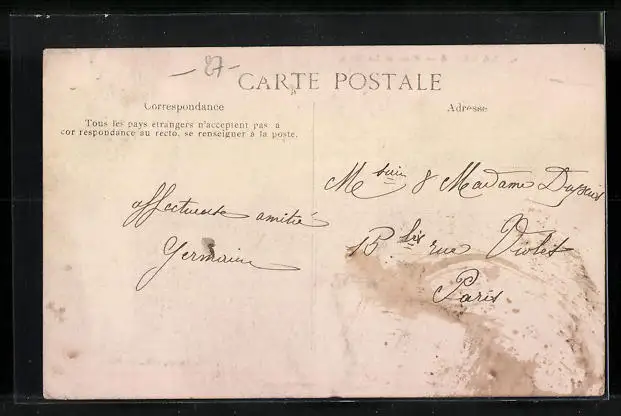 - 87 -
CARTE POSTALE
Correspondance
Adresse
Tous les pays étrangers n'acceptent pas a
correspondance au recto. se renseigner à la poste.
Msieu & Madame
affectueuse amitié
bis rue Violet
Germaine
Paris